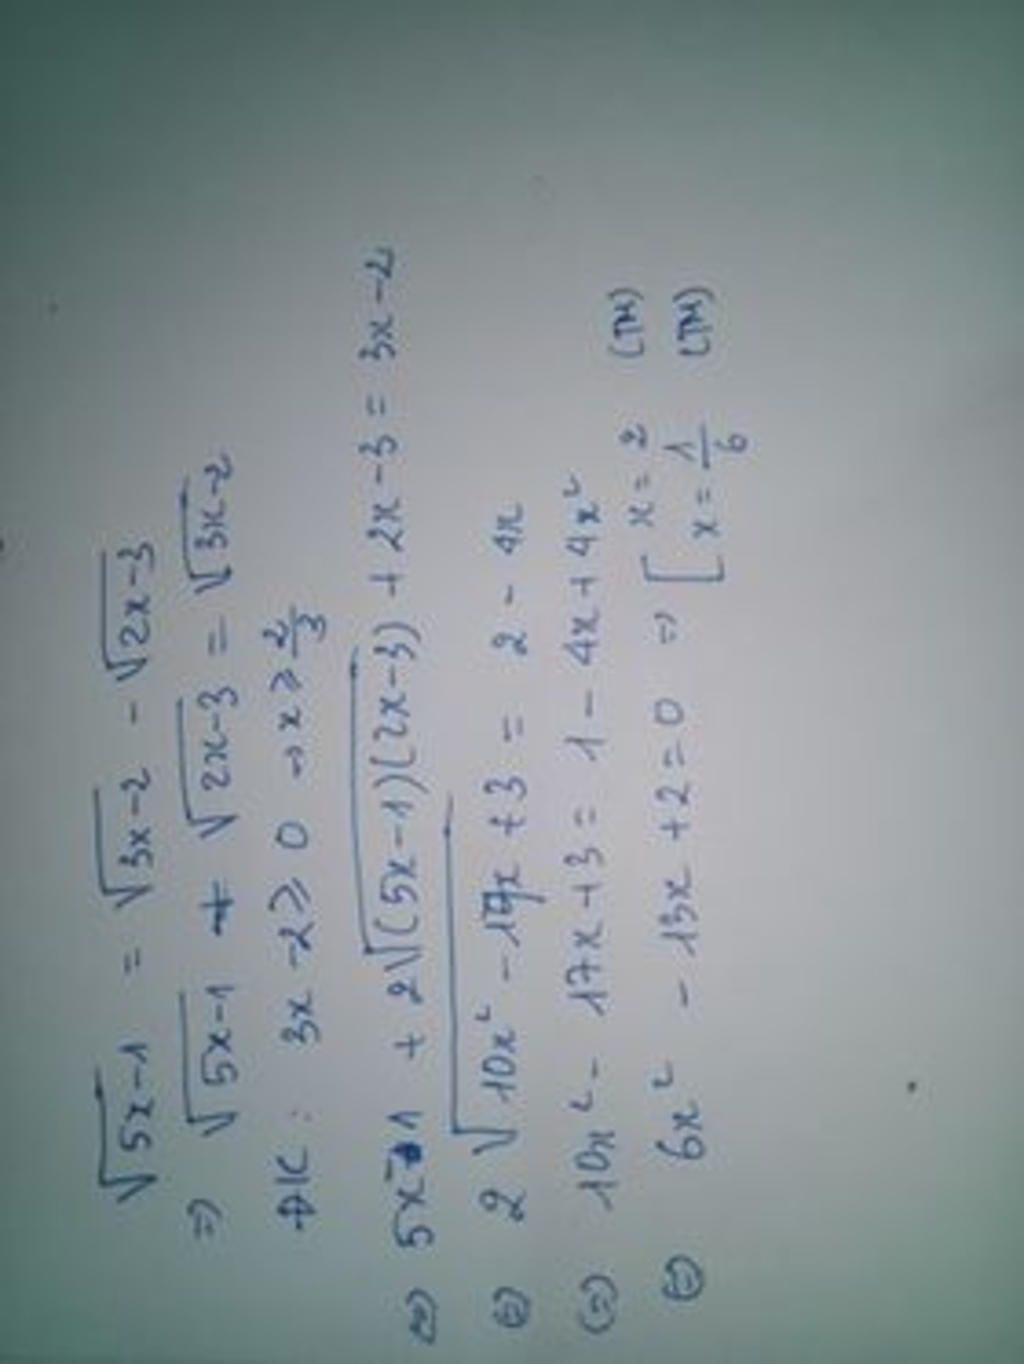 √(5x-1) = √(3x-2) - √(2x-3)
=> √(5x-1) + √(2x-3) = √(3x-2)
ĐK : 3x-2 ≥ 0 → x ≥ 2/3
<=> 5x-1 + 2√((5x-1)(2x-3)) + 2x-3 = 3x-2
<=> 2√(10x² - 17x + 3) = 2 - 4x
<=> 10x² - 17x + 3 = 1 - 4x + 4x²
<=> 6x² - 13x + 2 = 0 => [ x = 2 (TM)
x = 1/6 (TM)